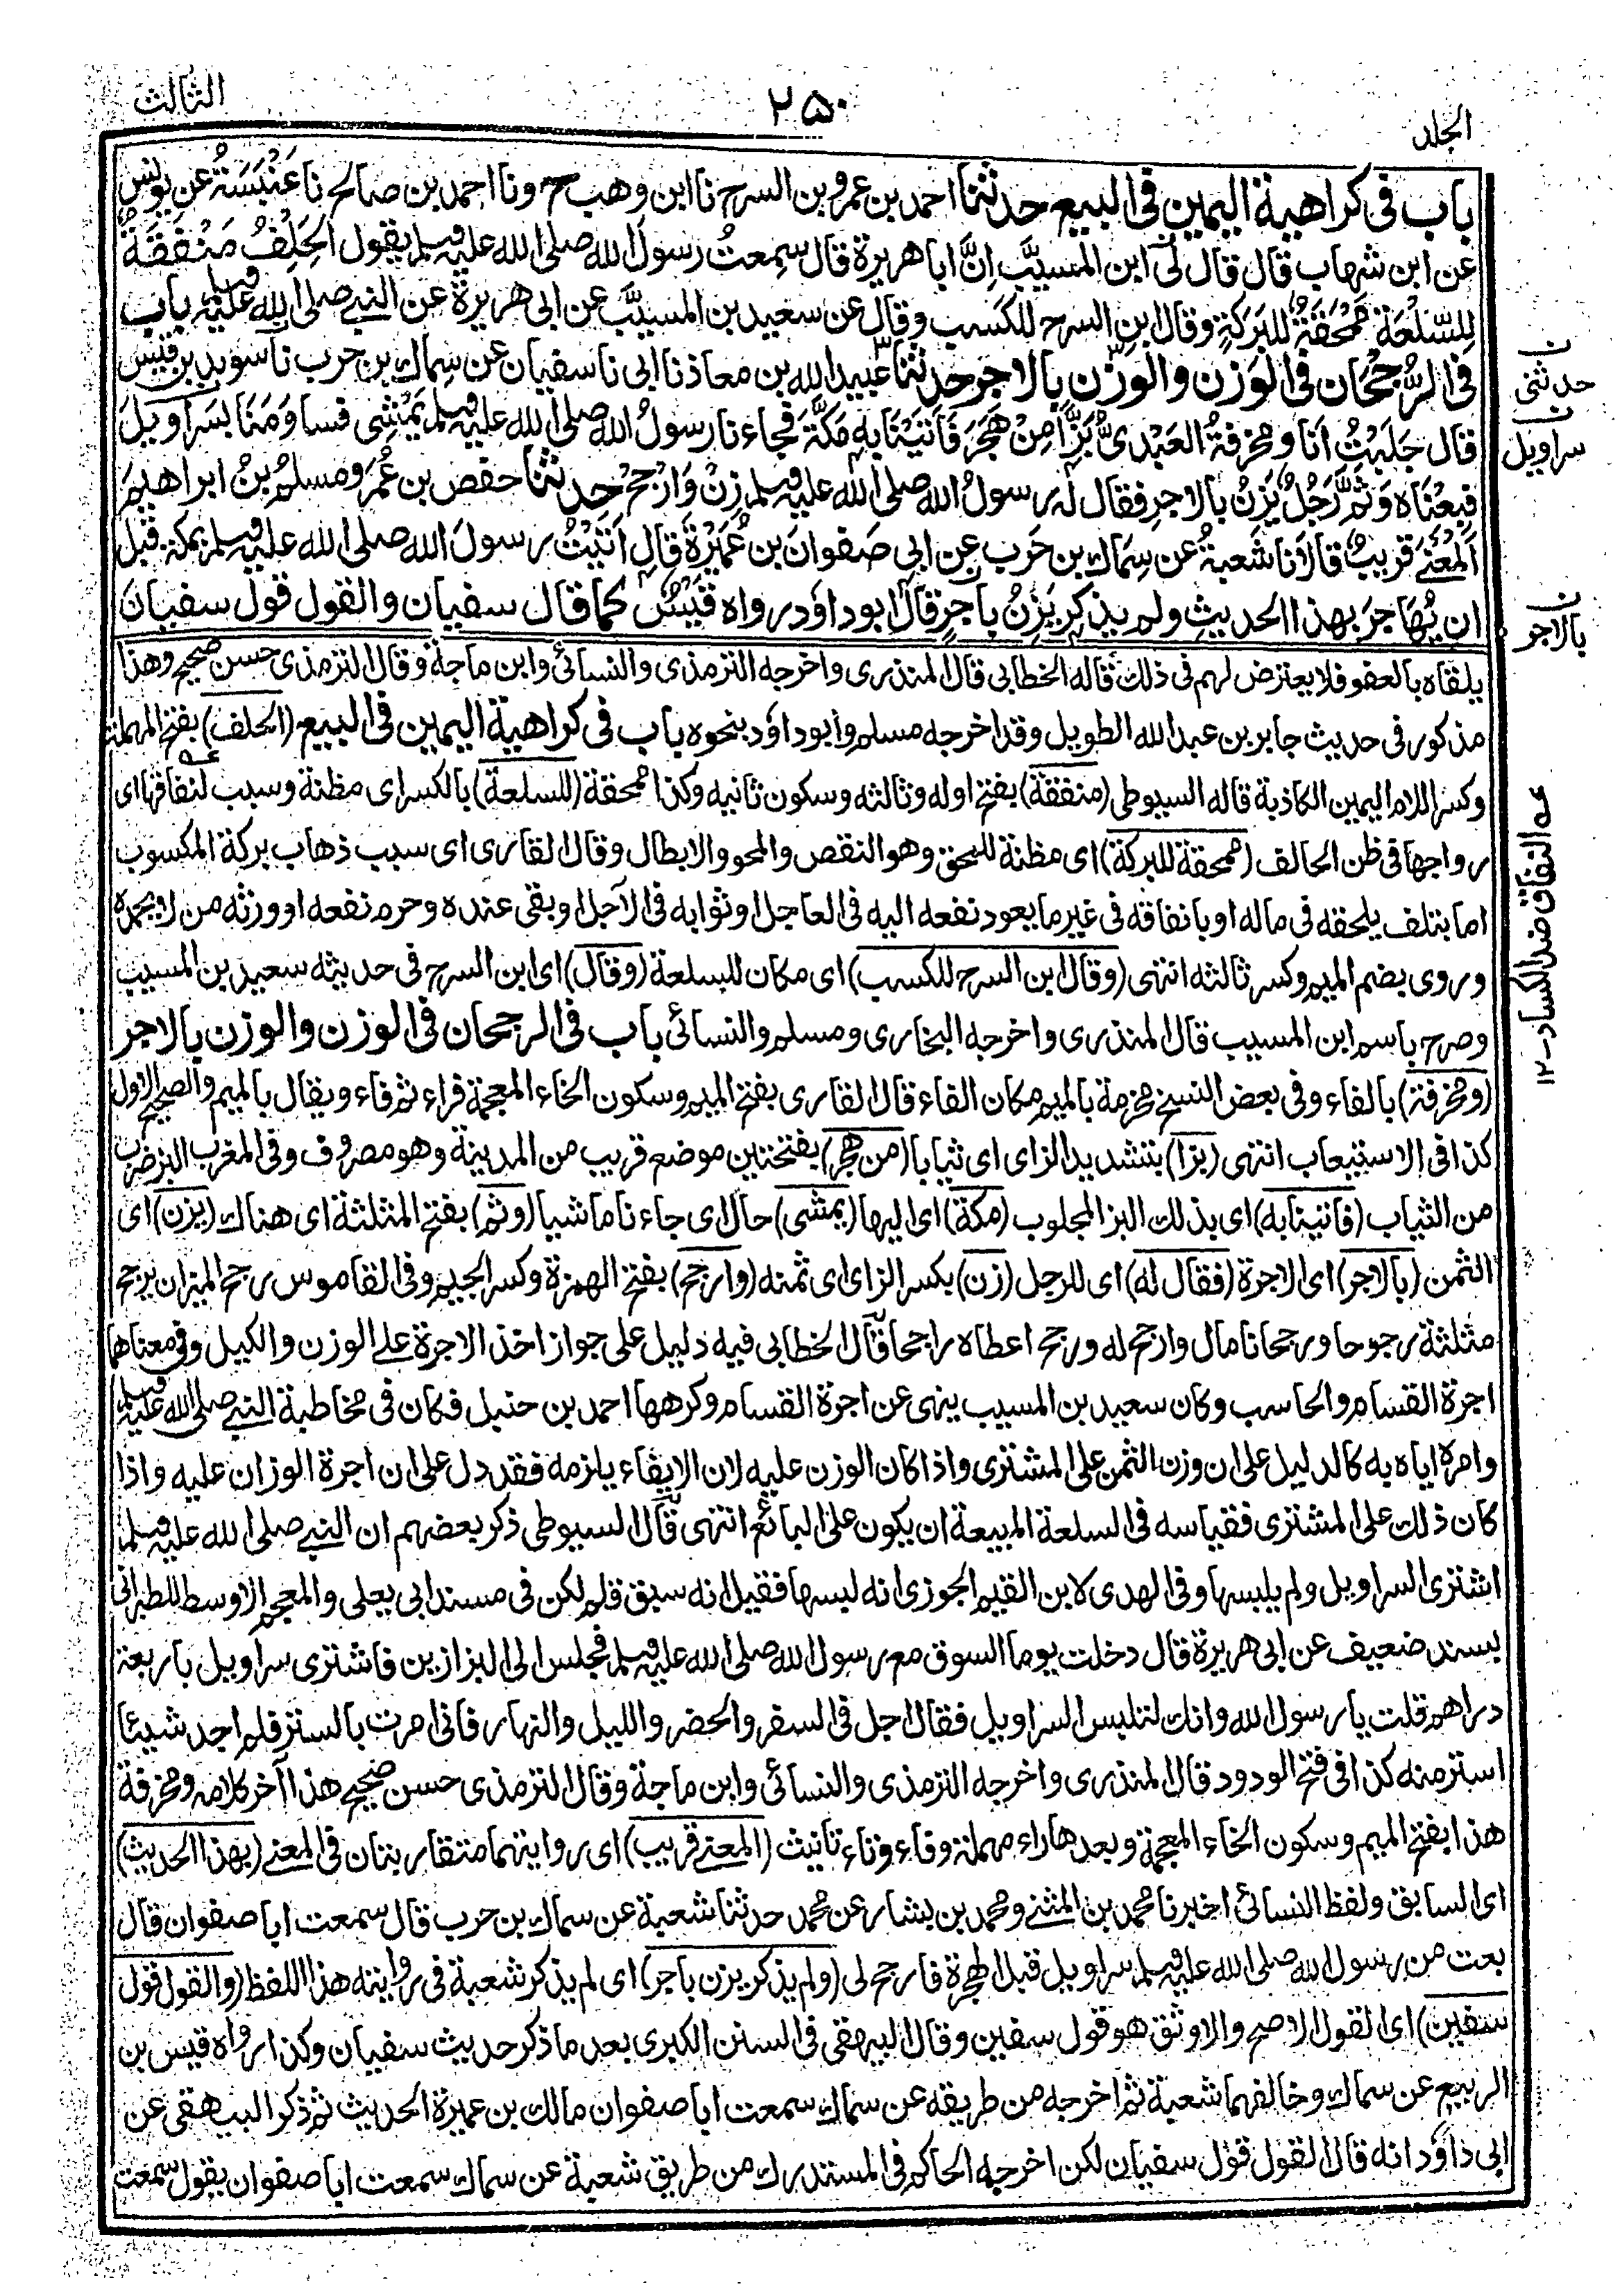 الجلد
٢٥٠
الثالث
باب فى كراهية اليمين فى البيع حدثنا احمد بن عمرو بن السرح نا ابن وهب ح ونا احمد بن صالح نا عَنْبَسَةُ عن يونس
عن ابن شهاب قال قال لى ابن المسيَّب اِنَّ ابا هريرة قال سمِعتُ رسولَ الله صلى الله عليه وسلم يقول الحَلِفُ مَنْفَقَةٌ
لِلسِّلْعَةِ مَمْحَقَةٌ للبَركةِ وقال ابن السرح للكَسبِ وقال عن سعيد بن المسيَّب عن ابى هريرة عن النبى صلى الله عليه وسلم باب
فى الرُّجْحَان فى الوَزن والوزن بالاجر حدثنا عبيد الله بن معاذ نا ابى نا سفيان عن سِماك بن حرب نا سويد بن قيس
قال جَلَبْتُ اَنا ومخرفةُ العَبْدىُّ بَزًّا مِنْ هَجَرَ فَاَتَيْنَا بِهِ مَكَّةَ فجاءنا رسولُ الله صلى الله عليه وسلم يَمْشِى فساوَمَنَا بسَراويلَ
فبِعْنَاه وَثَمَّ رَجُلٌ يَزِنُ بالاجرِ فقال له رسولُ الله صلى الله عليه وسلم زِنْ وَارْجِحْ حدثنا حفص بن عُمَرَ ومسلمُ بنُ ابراهيمَ
اَلمعْنى قريبٌ قالا نا شعبةُ عن سِماك بن حَرب عن ابى صَفوانَ بن عُمَيْرَةَ قال اَتَيْتُ رسولَ الله صلى الله عليه وسلم بمكة قبل
ان يُهَاجرَ بهذا الحديثِ ولم يذكر يَزِنُ بأجرٍ قال ابو داؤد رواه قَيسٌ كما قال سفيان والقول قول سفيان
يلقاه بالعفو فلا يعترض لهم فى ذلك قاله الخطابى قال المنذرى واخرجه الترمذى والنسائى وابن ماجة وقال الترمذى حسن صحيح وهذا
مذكور فى حديث جابر بن عبد الله الطويل وقد اخرجه مسلم وأبو داؤد بنحوه باب فى كراهية اليمين فى البيع (الحلف) بفتح المهملة
وكسر اللام اليمين الكاذبة قاله السيوطى (منفقة) بفتح اوله وثالثه وسكون ثانيه وكذا ممحقة (للسلعة) بالكسر اى مظنة وسبب لنفاقها اى
رواجها فى ظن الحالف (ممحقة للبركة) اى مظنة للمحق وهو النقص والمحو والابطال وقال القارى اى سبب ذهاب بركة المكسوب
اما بتلف يلحقه فى ماله او بانفاقه فى غير ما يعود نفعه اليه فى العاجل او ثوابه فى الآجل او بقى عنده وحرم نفعه او ورثه من لا يحمده
وروى بضم الميم وكسر ثالثه انتهى (وقال ابن السرح للكسب) اى مكان للسلعة (وقال) اى ابن السرح فى حديثه سعيد بن المسيب
وصرح باسم ابن المسيب قال المنذرى واخرجه البخارى ومسلم والنسائى باب فى الرجحان فى الوزن والوزن بالاجر
(ومخرفة) بالفاء وفى بعض النسخ مخرمة بالميم مكان الفاء قال القارى بفتح الميم وسكون الخاء المعجمة فراء ثم فاء ويقال بالميم والصحيح الاول
كذا فى الاستيعاب انتهى (بزا) بتشديد الزاى اى ثيابا (من هجر) بفتحتين موضع قريب من المدينة وهو مصروف وفى المغرب البز ضرب
من الثياب (فاتينا به) اى بذلك البز المجلوب (مكة) اى اليها (يمشى) حال اى جاءنا ماشيا (وثم) بفتح المثلثة اى هناك (يزن) اى
الثمن (بالاجر) اى الاجرة (فقال له) اى للرجل (زن) بكسر الزاى اى ثمنه (وارجح) بفتح الهمزة وكسر الجيم وفى القاموس رجح الميزان يرجح
مثلثة رجوحا ورجحانا مال وارجح له ورجح اعطاه راجحا قال الخطابى فيه دليل على جواز اخذ الاجرة على الوزن والكيل وفى معناهما
اجرة القسام والحاسب وكان سعيد بن المسيب ينهى عن اجرة القسام وكرهها احمد بن حنبل فكان فى مخاطبة النبى صلى الله عليه وسلم
وامره اياه به كالدليل على ان وزن الثمن على المشترى واذا كان الوزن عليه لان الايفاء يلزمه فقد دل على ان اجرة الوزان عليه واذا
كان ذلك على المشترى فقياسه فى السلعة المبيعة ان يكون على البائع انتهى قال السيوطى ذكر بعضهم ان النبى صلى الله عليه وسلم
اشترى السراويل ولم يلبسها وفى الهدى لابن القيم الجوزى انه لبسها فقيل انه سبق قلم لكن فى مسند ابى يعلى والمعجم الاوسط للطبرانى
بسند ضعيف عن ابى هريرة قال دخلت يوما السوق مع رسول الله صلى الله عليه وسلم فجلس الى البزازين فاشترى سراويل باربعة
دراهم قلت يا رسول الله وانك لتلبس السراويل فقال اجل فى السفر والحضر والليل والنهار فانى امرت بالستر فلم اجد شيئا
استر منه كذا فى فتح الودود قال المنذرى واخرجه الترمذى والنسائى وابن ماجة وقال الترمذى حسن صحيح هذا آخر كلامه ومخرفة
هذا بفتح الميم وسكون الخاء المعجمة وبعدها راء مهملة وفاء وتاء تانيث (المعنى قريب) اى روايتهما متقاربتان فى المعنى (بهذا الحديث)
اى السابق ولفظ النسائى اخبرنا محمد بن المثنى ومحمد بن بشار عن محمد حدثنا شعبة عن سماك بن حرب قال سمعت ابا صفوان قال
بعت من رسول الله صلى الله عليه وسلم سراويل قبل الهجرة فارجح لى (ولم يذكر يزن باجر) اى لم يذكر شعبة فى روايته هذا اللفظ (والقول قول
سفين) اى القول الاصح والاوثق هو قول سفين وقال البيهقى فى السنن الكبرى بعد ما ذكر حديث سفيان وكذا رواه قيس بن
الربيع عن سماك وخالفهما شعبة ثم اخرجه من طريقه عن سماك سمعت ابا صفوان مالك بن عميرة الحديث ثم ذكر البيهقى عن
ابى داؤد انه قال القول قول سفيان لكن اخرجه الحاكم فى المستدرك من طريق شعبة عن سماك سمعت ابا صفوان يقول سمعت
ن
حدثنى
ن
سراويل
ن
بالاجر
عه النفاق ضد الكساد - ١٢